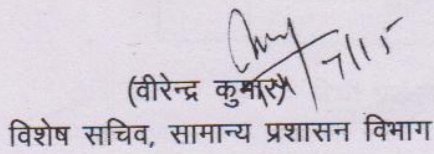 7/1/15
(वीरेन्द्र कुमार)
विशेष सचिव, सामान्य प्रशासन विभाग